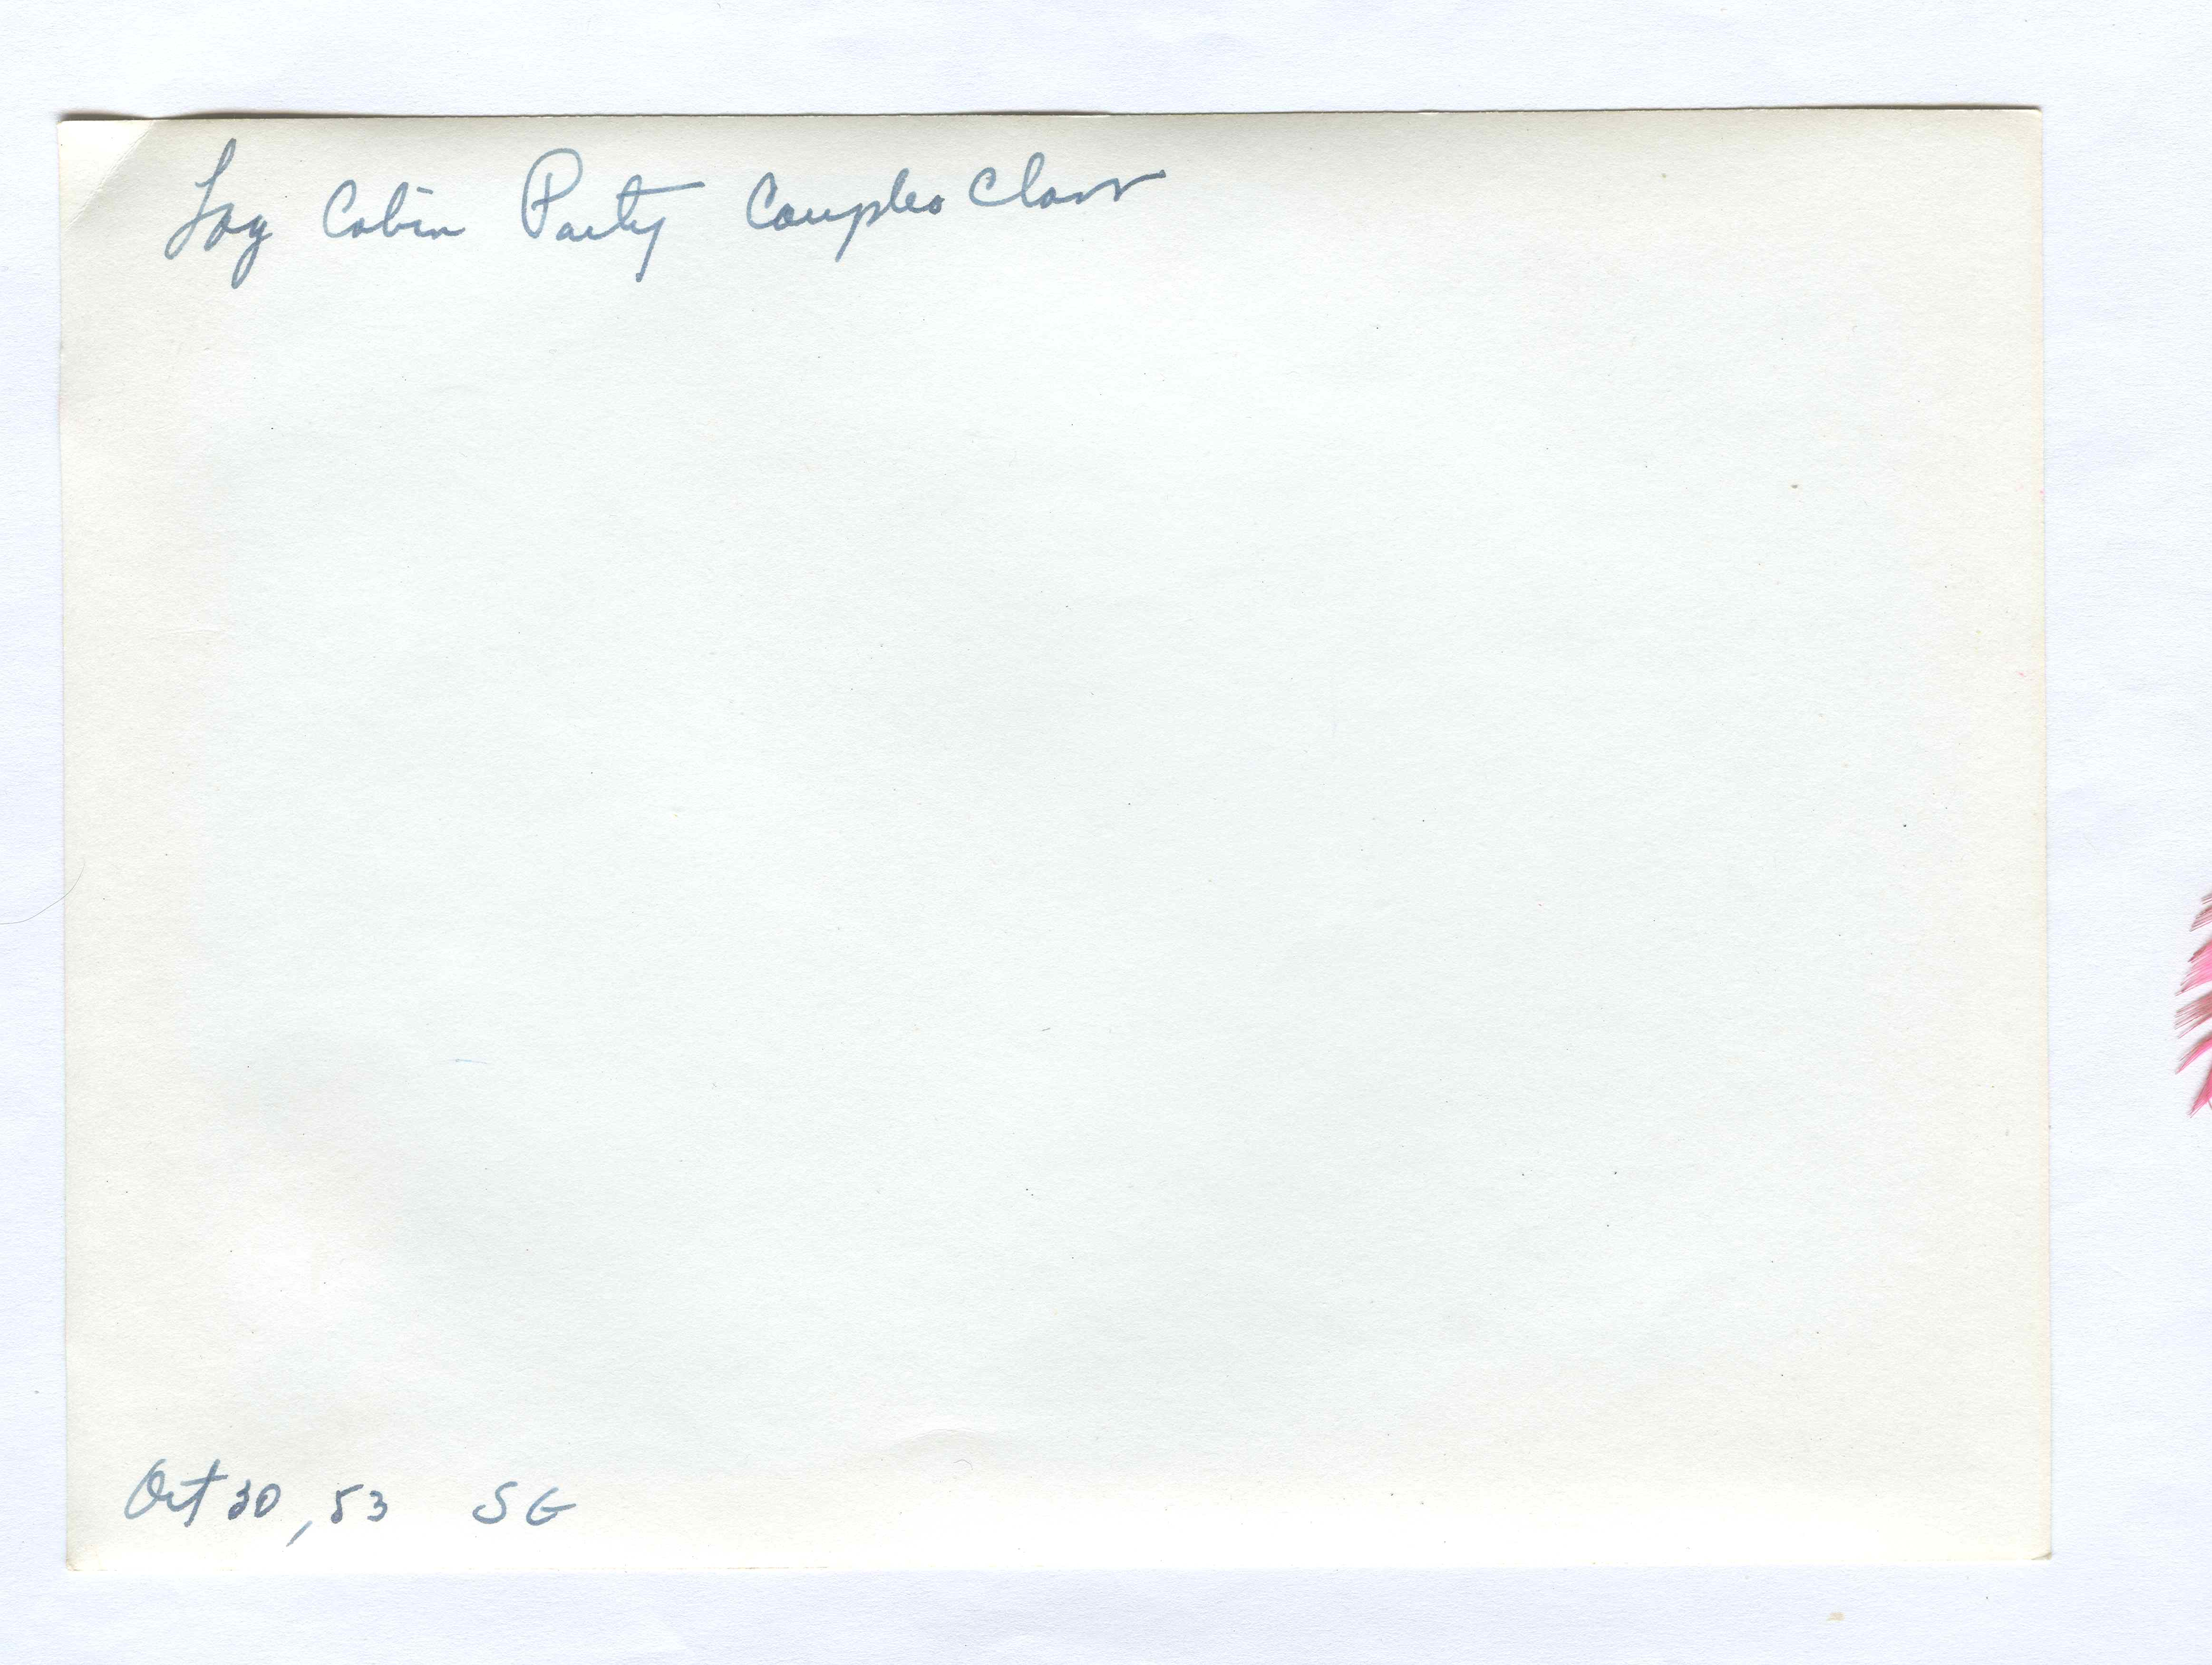 Log Cabin Party Couples Class
Oct 30, 53 SG